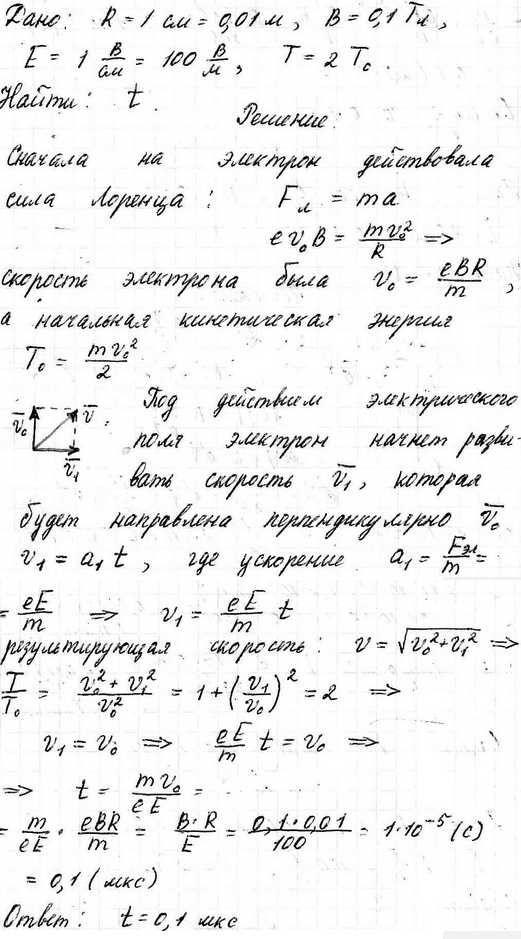 Дано: R = 1 см = 0,01 м, B = 0,1 Тл,
E = 1 В/см = 100 В/м, T = 2 T₀.
Найти: t.
Решение:
Сначала на электрон действовала
сила Лоренца: Fл = ma
e v₀ B = mv₀²/R =>
скорость электрона была v₀ = eBR/m,
а начальная кинетическая энергия
T₀ = mv₀²/2
v̅₀ v̅ v̅₁
Под действием электрического
поля электрон начнет разви-
вать скорость v̅₁, которая
будет направлена перпендикулярно v̅₀
v₁ = a₁ t, где ускорение a₁ = Fэл/m =
= eE/m => v₁ = eE/m t
результирующая скорость: v = √(v₀² + v₁²) =>
T/T₀ = (v₀² + v₁²)/v₀² = 1 + (v₁/v₀)² = 2 =>
v₁ = v₀ => eE/m t = v₀ =>
=> t = mv₀/eE =
= m/eE · eBR/m = B·R/E = 0,1·0,01/100 = 1·10⁻⁵ (с)
= 0,1 (мкс)
Ответ: t = 0,1 мкс